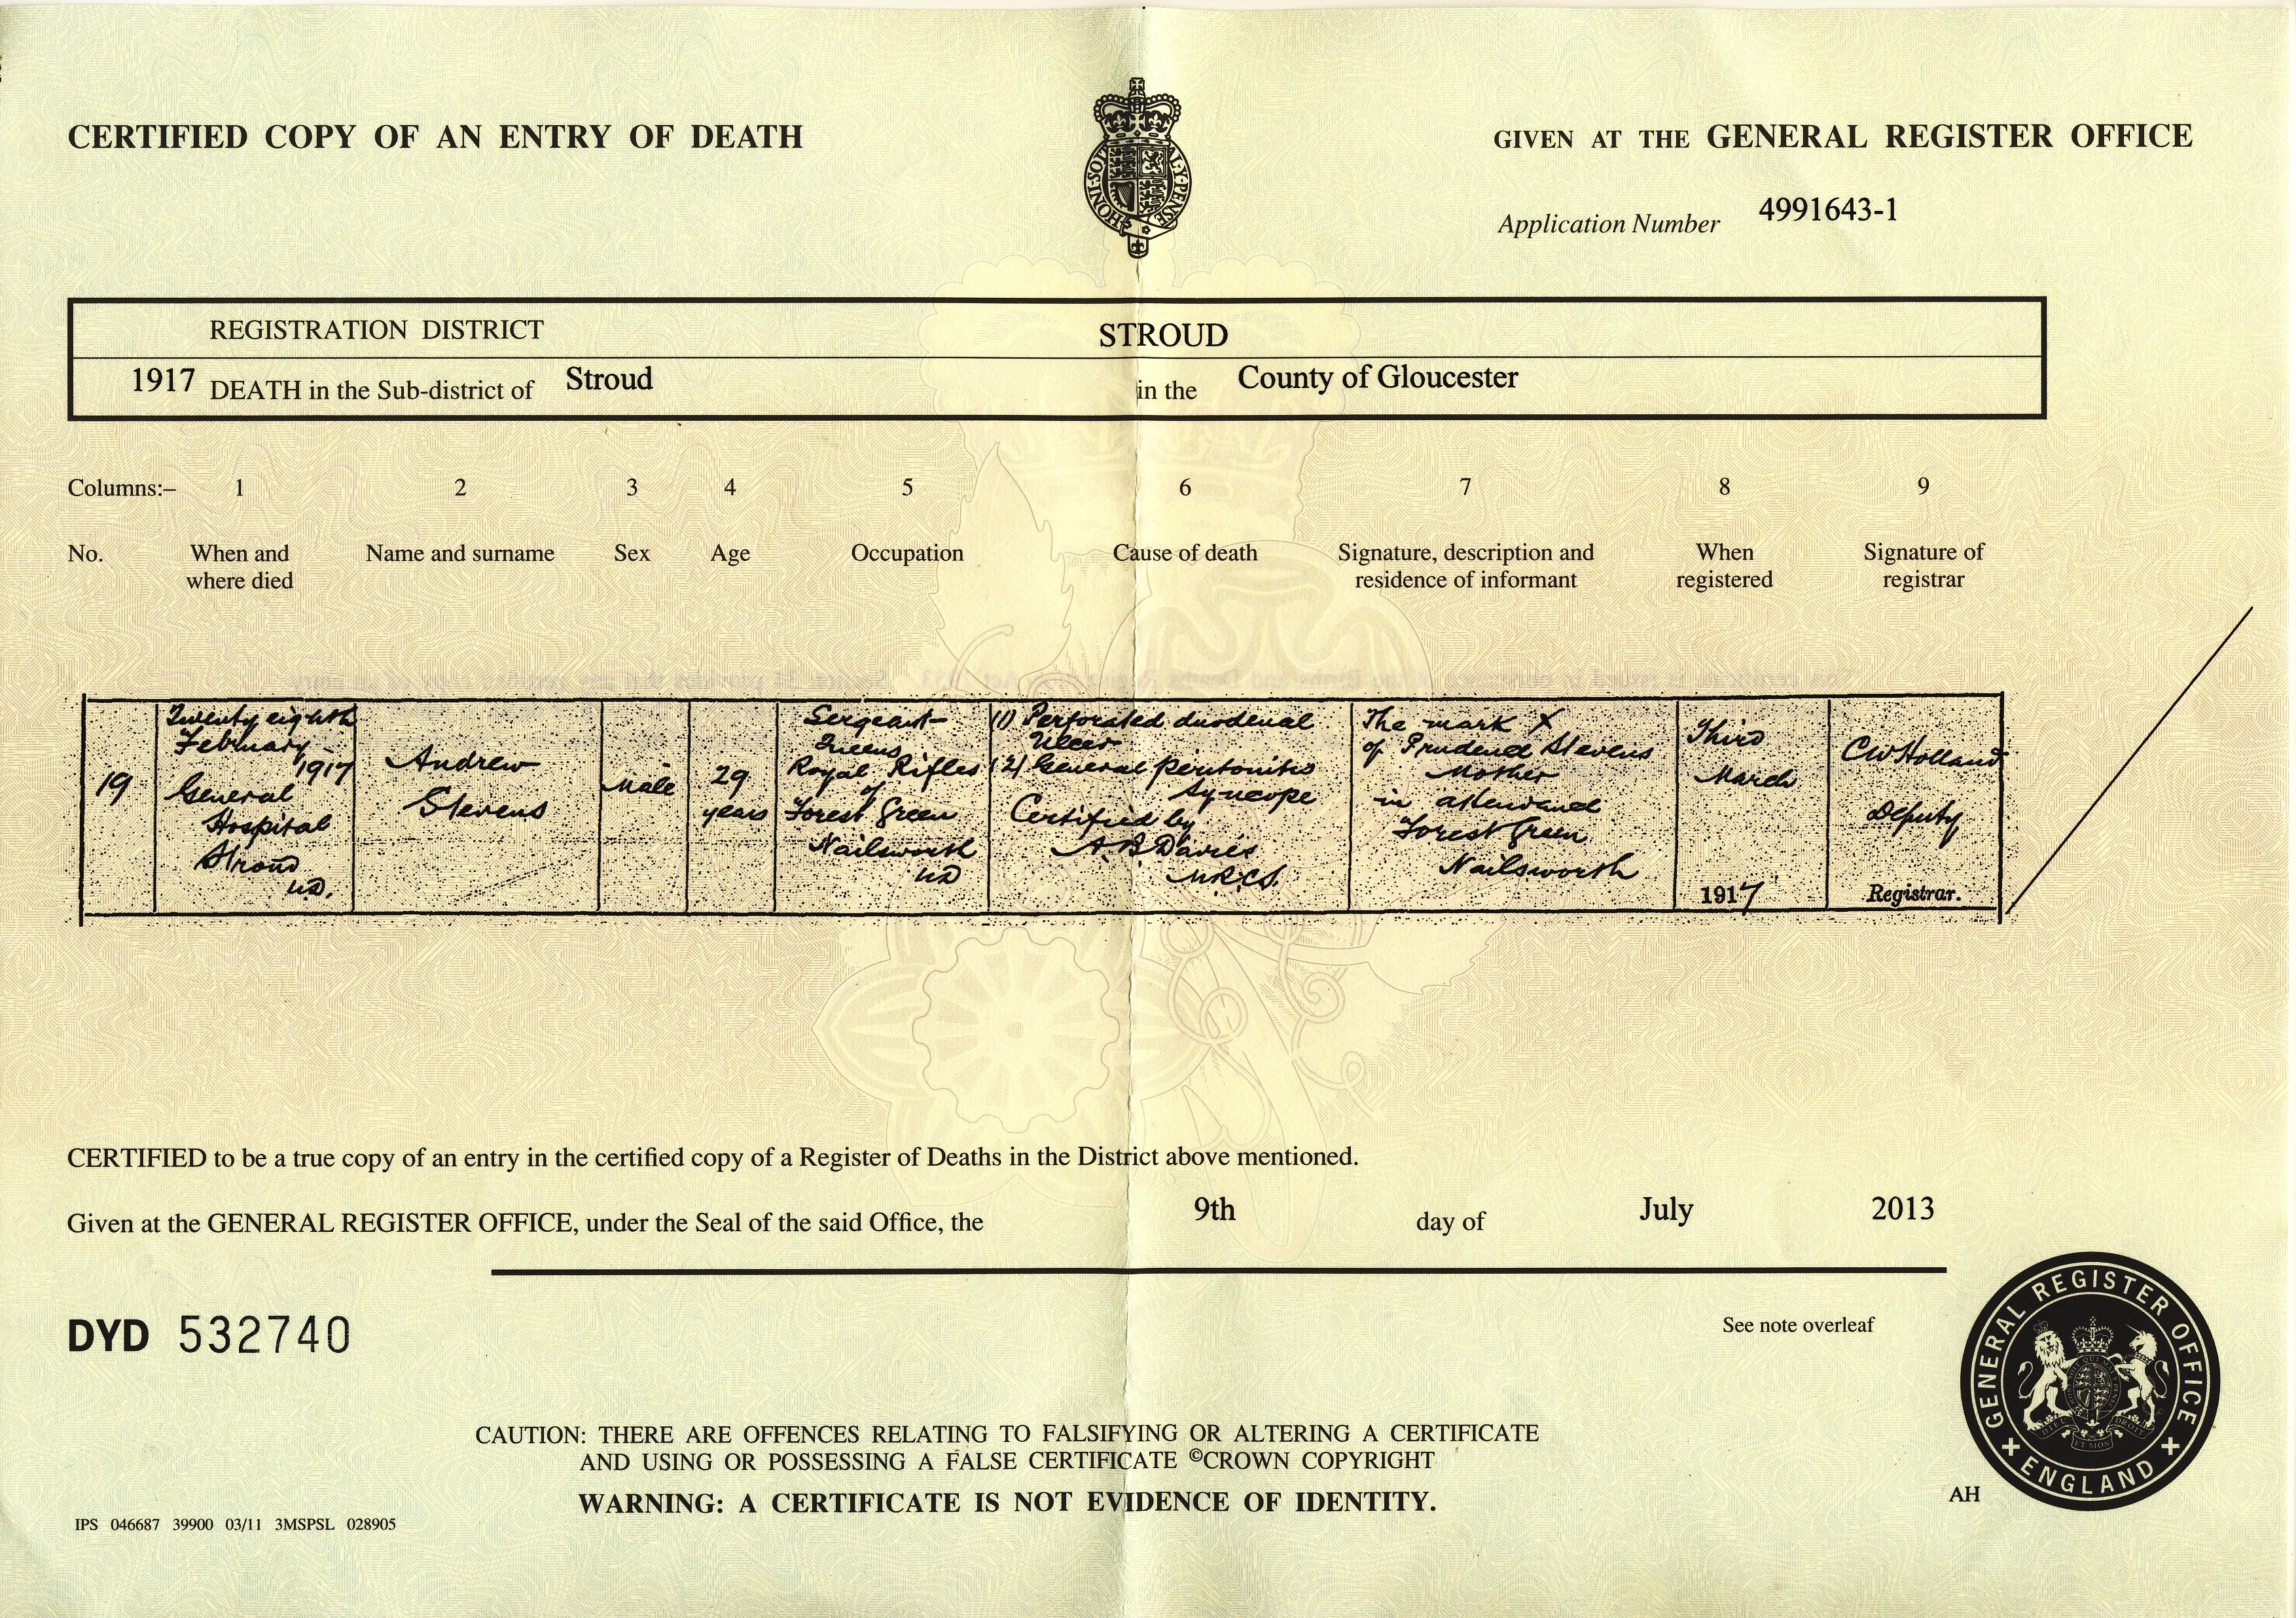 CERTIFIED COPY OF AN ENTRY OF DEATH
GIVEN AT THE GENERAL REGISTER OFFICE
HONI·SOIT AL·Y·PENSE
Application Number 4991643-1
REGISTRATION DISTRICT STROUD
1917 DEATH in the Sub-district of Stroud in the County of Gloucester
Columns:– 1 2 3 4 5 6 7 8 9
No. When and where died Name and surname Sex Age Occupation Cause of death Signature, description and residence of informant When registered Signature of registrar
19
Twenty eighth
February
1917
General
Hospital
Stroud
U.D.
Andrew
Stevens
Male
29
years
Sergeant-
Queens
Royal Rifles
of
Forest Green
Nailsworth
UD
(1) Perforated duodenal
Ulcer
(2) General peritonitis
Syncope
Certified by
A. B. Davies
M.R.C.S.
The mark X
of Prudence Stevens
Mother
in attendance
Forest Green
Nailsworth
Third
March
1917
CW Holland
Deputy
Registrar.
CERTIFIED to be a true copy of an entry in the certified copy of a Register of Deaths in the District above mentioned.
Given at the GENERAL REGISTER OFFICE, under the Seal of the said Office, the 9th day of July 2013
DYD 532740
See note overleaf
GENERAL REGISTER OFFICE
ENGLAND
CAUTION: THERE ARE OFFENCES RELATING TO FALSIFYING OR ALTERING A CERTIFICATE
AND USING OR POSSESSING A FALSE CERTIFICATE ©CROWN COPYRIGHT
WARNING: A CERTIFICATE IS NOT EVIDENCE OF IDENTITY.
AH
IPS 046687 39900 03/11 3MSPSL 028905